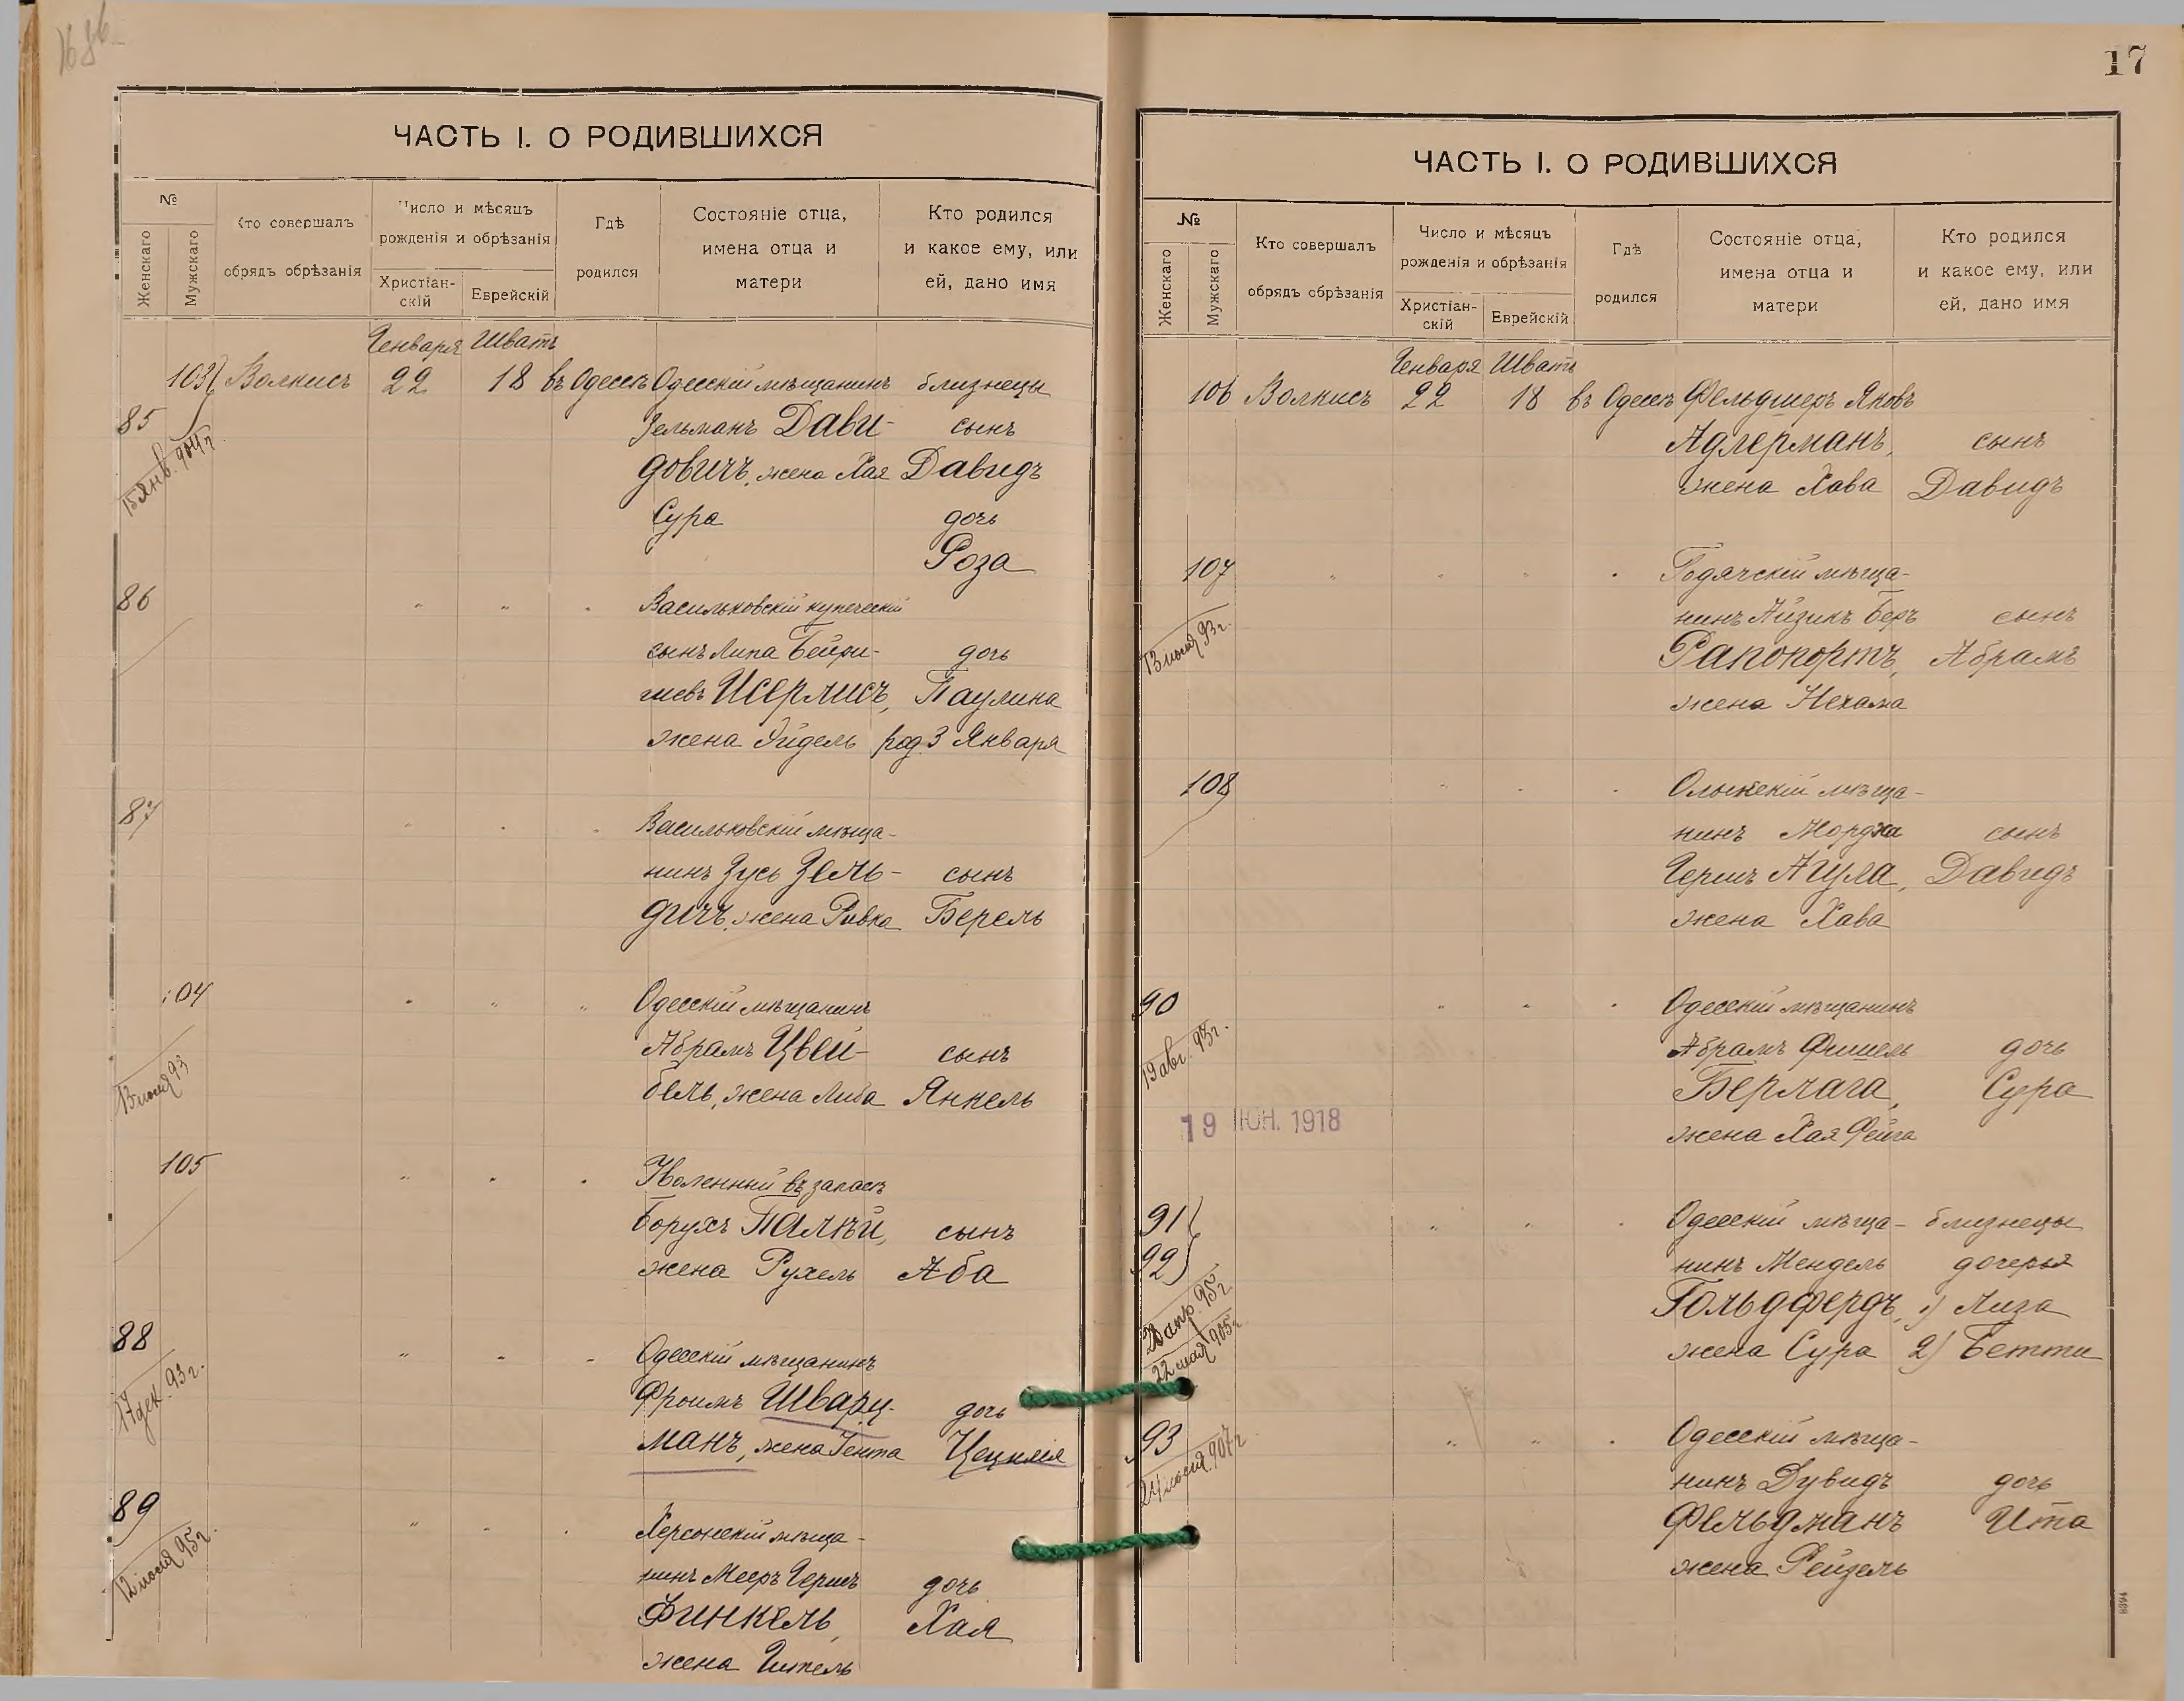 ЧАСТЬ I. О РОДИВШИХСЯ
№
Женскаго
Мужскаго
Кто совершалъ
обрядъ обрѣзанія
Число и мѣсяцъ
рожденія и обрѣзанія
Христіан-
скій
Еврейскій
Гдѣ
родился
Состояніе отца,
имена отца и
матери
Кто родился
и какое ему, или
ей, дано имя
Генваря Шватъ
103 Волкисъ 22 18 въ Одессѣ Одесскій мѣщанинъ близнецы
85 Зельманъ Дави- сынъ
15 Янв. 904 г.
довичъ, жена Хая Давидъ
Сура дочь
Роза
86 " " " Васильковскій купеческій
сынъ Липа Бейри- дочь
шевъ Исерлисъ, Паулина
жена Эйдель род. 3 Января
87 " " " Васильковскій мѣща-
нинъ Зусь Зель- сынъ
дичъ, жена Ривка Берель
104 " " " Одесскій мѣщанинъ
Абрамъ Цвей- сынъ
13 іюля 93
бель, жена Либа Янкель
105 " " " Уволенный въ запасъ
Борухъ Палѣй, сынъ
жена Рухель Аба
88 " " " Одесскій мѣщанинъ
17 дек. 93 г.
Фроимъ Шварц- дочь
манъ, жена Гента Цецилія
89 " " " Херсонскій мѣща-
12 іюля 95 г.
нинъ Мееръ Гершъ дочь
Финкель, Хая
жена Гитель
17
ЧАСТЬ I. О РОДИВШИХСЯ
№
Женскаго
Мужскаго
Кто совершалъ
обрядъ обрѣзанія
Число и мѣсяцъ
рожденія и обрѣзанія
Христіан-
скій
Еврейскій
Гдѣ
родился
Состояніе отца,
имена отца и
матери
Кто родился
и какое ему, или
ей, дано имя
Генваря Шватъ
106 Волкисъ 22 18 въ Одессѣ Фельдшеръ Яковъ
Адлерманъ, сынъ
жена Хава Давидъ
107 " " " Гадячскій мѣща-
13 іюля 93 г.
нинъ Айзикъ Беръ сынъ
Рапопортъ, Абрамъ
жена Нехама
108 " " " Олыкскій мѣща-
нинъ Мордха сынъ
Гершъ Агула, Давидъ
жена Хава
90 " " " Одесскій мѣщанинъ
19 авг. 93 г.
Абрамъ Фишель дочь
Берлага, Сура
19 ІЮН. 1918
жена Хая Фейга
91 " " " Одесскій мѣща- близнецы
92 нинъ Мендель дочерья
Гольдфердъ, 1) Лиза
22 мая 905 г.
жена Сура 2) Бетти
93 " " " Одесскій мѣща-
24 іюля 907 г.
нинъ Дувидъ дочь
Фельдманъ Ита
жена Рейзель